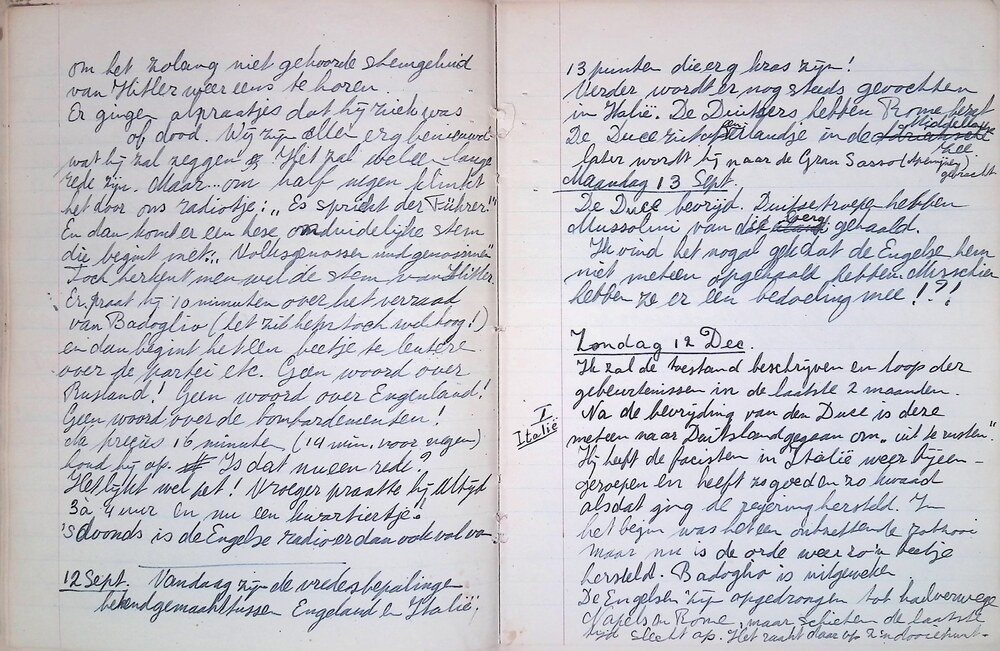 om het zolang niet gehoorde stemgeluid
van Hitler weer eens te horen.
Er gingen al praatjes dat hij ziek was
of dood. Wij zijn allen erg benieuwd
wat hij zal zeggen. Het zal wel een lange
rede zijn. Maar... om half negen klinkt
het door ons radiotje: „Es spricht der Führer!"
En dan komt er een hese onduidelijke stem
die begint met: „Volksgenossen und genossinnen"
Toch herkent men wel de stem van Hitler.
Er praat hij 10 minuten over het verraad
van Badoglio (het zit hem toch wel hoog!)
en dan begint het een beetje te leutere
over de partei etc. Geen woord over
Rusland! Geen woord over Engenland!
Geen woord over de bombardementen!
Na precies 16 minuten (14 min. voor negen)
houd hij op. Is dat nu een rede?
Het lijkt wel pet! Vroeger praatte hij altijd
3 à 4 uur en nu een kwartiertje!
's avonds is de Engelse radio er dan ook vol van
12 Sept. Vandaag zijn de vredesbepalingen
bekendgemaakt tussen Engeland en Italië;
13 punten die erg kras zijn!
Verder wordt er nog steeds gevochten
in Italië. De Duitsers hebben Rome bezet
De Duce zit op een eilandje in de Middellandse
Zee
later wordt hij naar de Gran Sasso
gebracht
Maandag 13 Sept.
De Duce bevrijd. Duitse troepe hebben
Mussolini van die berg gehaald.
Ik vind het nogal gek dat de Engelse hem
niet meteen opgehaald hebben. Misschien
hebben ze er een bedoeling mee!?!
Zondag 12 Dec.
Ik zal de toestand beschrijven en loop der
gebeurtenissen in de laatste 2 maanden.
I
Italië
Na de bevrijding van den Duce is deze
meteen naar Duitsland gegaan om „uit te rusten".
Hij heeft de facisten in Italië weer bijeen-
geroepen en heeft zo goed en zo kwaad
als dat ging de regering hersteld. In
het begin was het een ontzettende rotzooi
maar nu is de orde weer zo'n beetje
hersteld. Badoglio is uitgeweken
De Engelsen zijn opgedrongen tot halverwege
Napels en Rome, maar schieten de laatste
tijd slecht op. Het raakt daar op 'n dood punt.